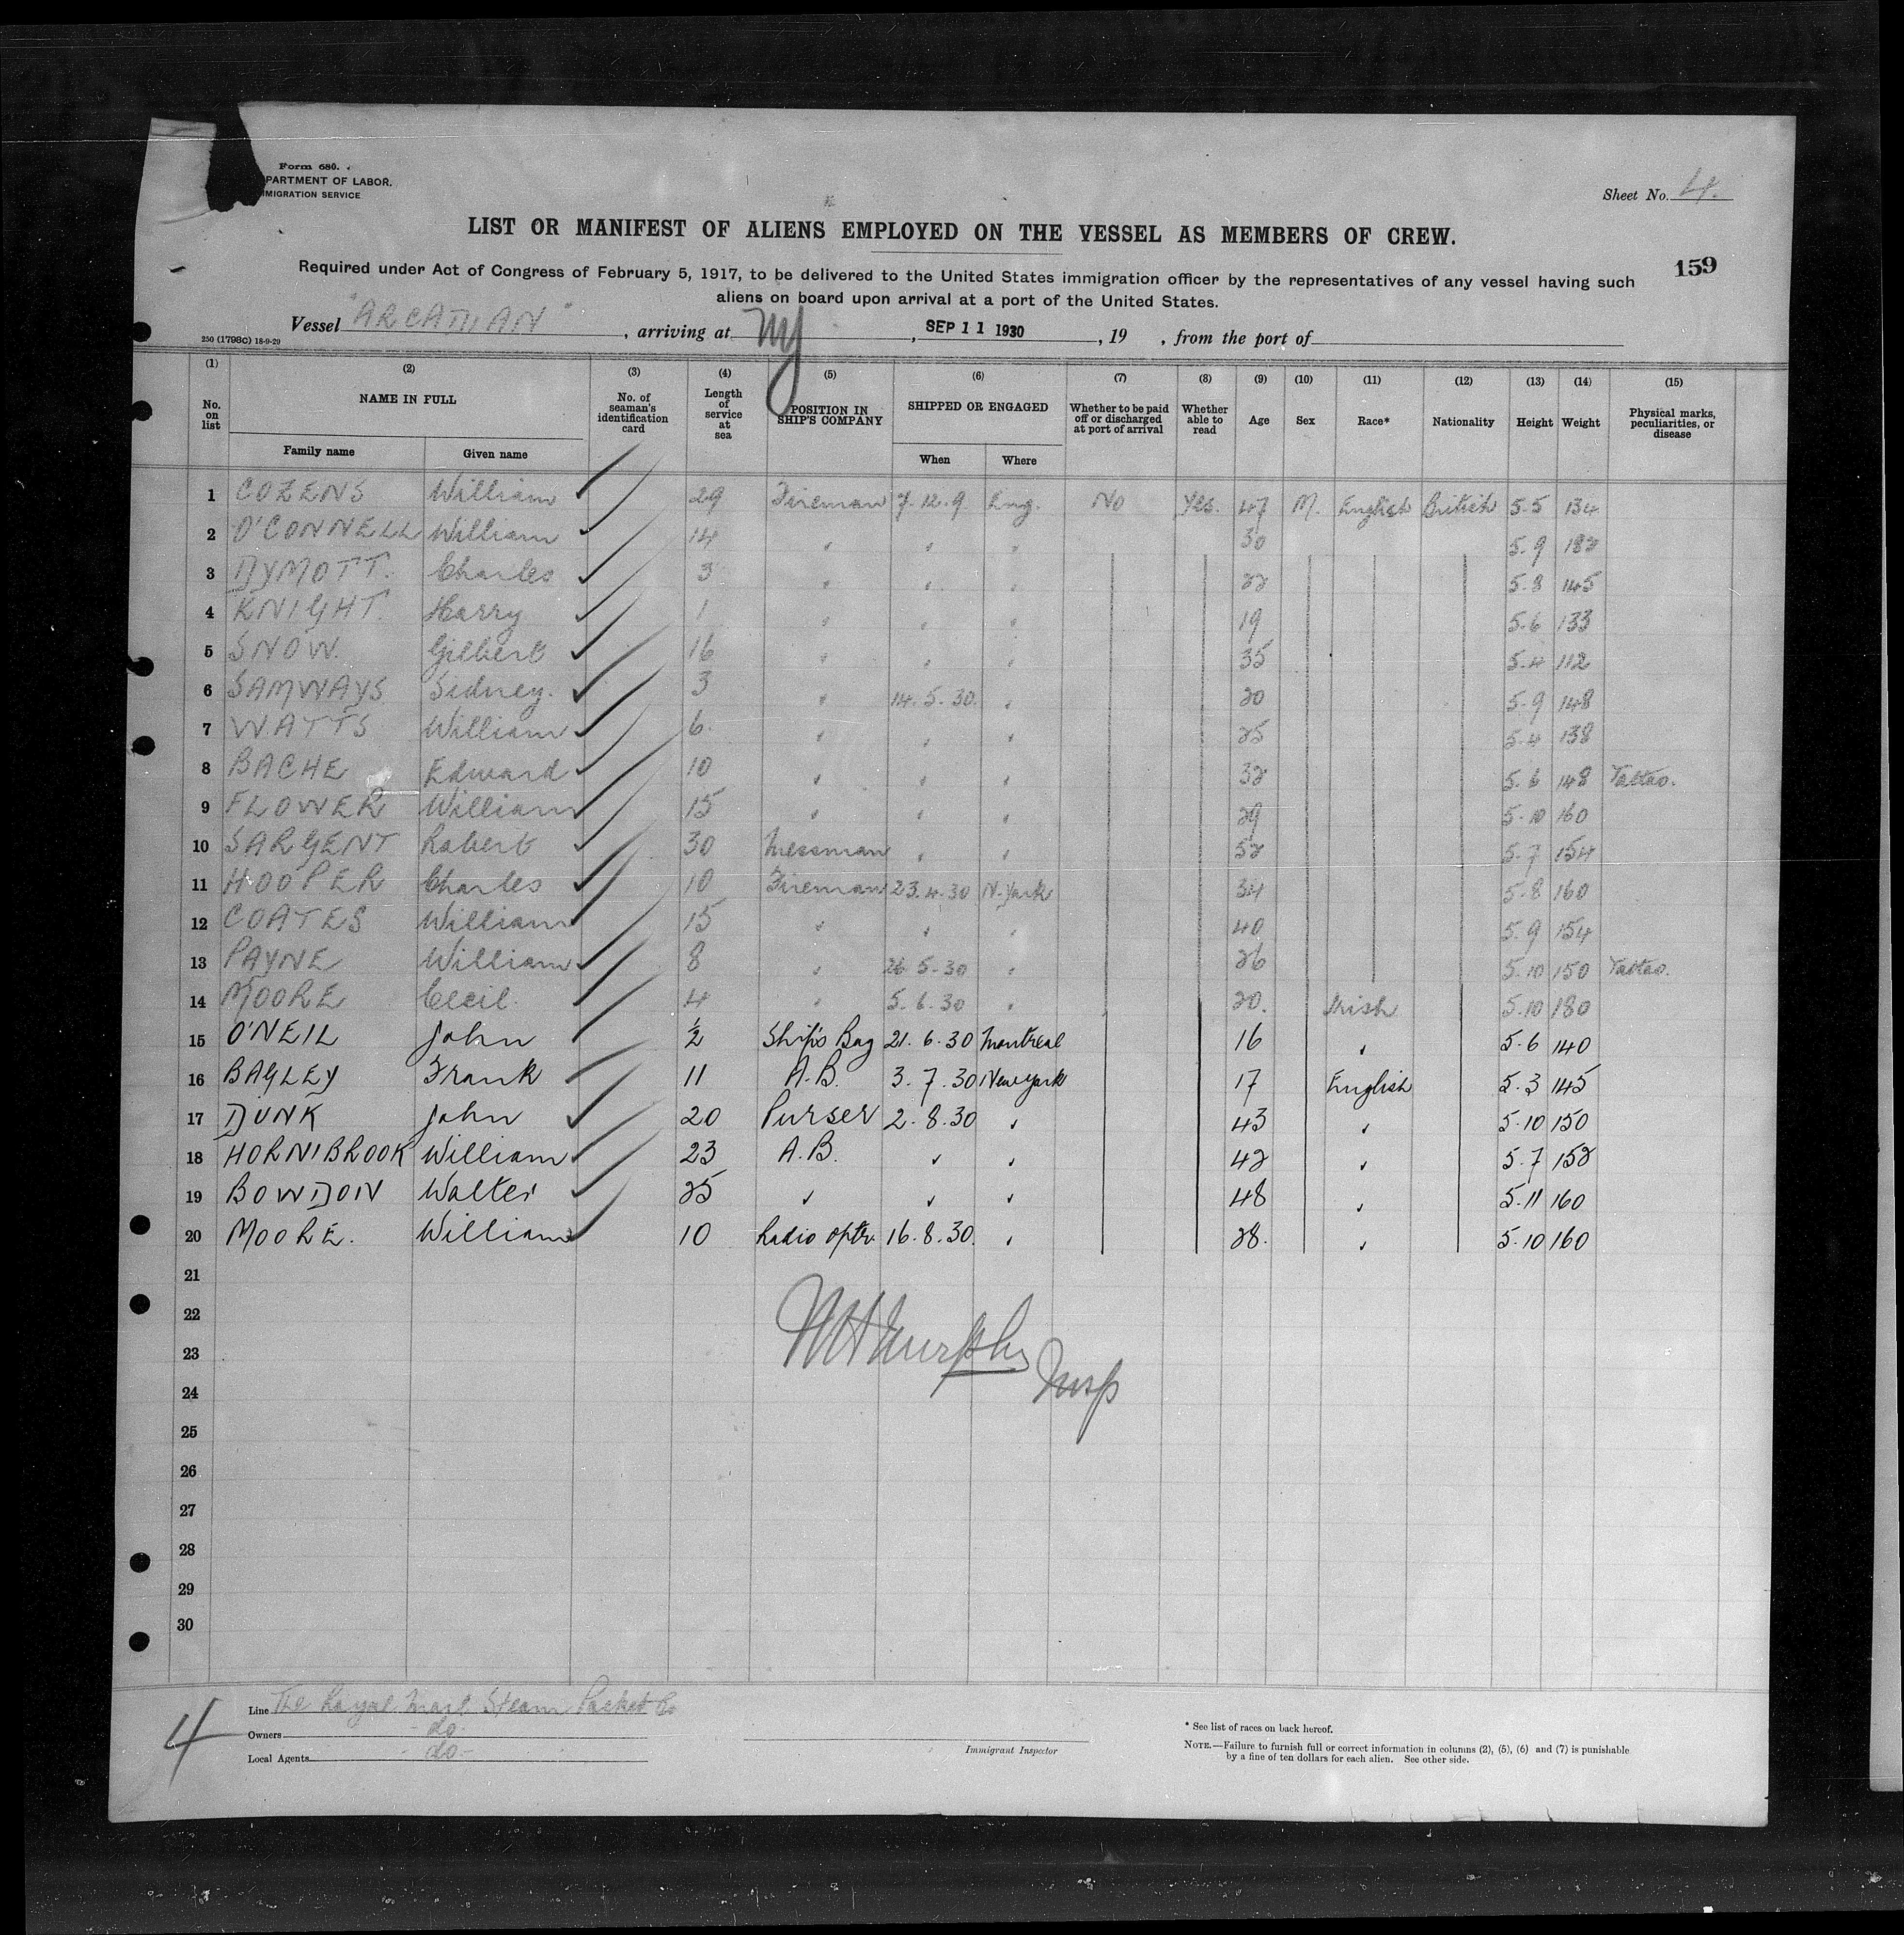 Form 680.
PARTMENT OF LABOR.
MIGRATION SERVICE
Sheet No. 4.
LIST OR MANIFEST OF ALIENS EMPLOYED ON THE VESSEL AS MEMBERS OF CREW.
159
Required under Act of Congress of February 5, 1917, to be delivered to the United States immigration officer by the representatives of any vessel having such
aliens on board upon arrival at a port of the United States.
Vessel "ARCADIAN", arriving at NY, SEP 11 1930, 19 , from the port of
250 (1798c) 18-9-29
(1) (2) (3) (4) (5) (6) (7) (8) (9) (10) (11) (12) (13) (14) (15)
No. on list NAME IN FULL No. of seaman's identification card Length of service at sea POSITION IN SHIP'S COMPANY SHIPPED OR ENGAGED Whether to be paid off or discharged at port of arrival Whether able to read Age Sex Race* Nationality Height Weight Physical marks, peculiarities, or disease
Family name Given name When Where
1 COZENS William 29 Fireman 7.12.9 Eng. No Yes. 47 M. English British 5.5 134
2 O'CONNELL William 14 " " " 30 5.9 182
3 DYMOTT. Charles 3 " " " 22 5.8 145
4 KNIGHT. Harry 1 " " " 19 5.6 133
5 SNOW. Gilbert 16 " " " 35 5.4 112
6 SAMWAYS Sidney. 3 " 14.5.30. " 20 5.9 148
7 WATTS William 6. " " " 25 5.4 138
8 BACHE Edward 10 " " " 32 5.6 148 Tattoo.
9 FLOWER William 15 " " " 29 5.10 160
10 SARGENT Robert 30 Messman " " 52 5.7 154
11 HOOPER Charles 10 Fireman 23.4.30 N.York 34 5.8 160
12 COATES William 15 " " " 40 5.9 154
13 PAYNE William 8 " 26.5.30 " 26 5.10 150 Tattoo.
14 MOORE Cecil. 4 " 5.6.30 " 20. Irish 5.10 180
15 O'NEIL John ½ Ship's Boy 21.6.30 Montreal 16 " 5.6 140
16 BAGLEY Frank 11 A.B. 3.7.30 New York 17 English 5.3 145
17 DUNK John 20 Purser 2.8.30 " 43 " 5.10 150
18 HORNIBROOK William 23 A.B. " " 42 " 5.7 152
19 BOWDON Walter 25 " " " 48 " 5.11 160
20 MOORE. William 10 Radio optr. 16.8.30. " 28. " 5.10 160
21
22
23
24
25
26
27
28
29
30
Murphy
Insp
4
Line The Royal Mail Steam Packet Co
Owners -do-
Local Agents -do-
Immigrant Inspector
* See list of races on back hereof.
NOTE.—Failure to furnish full or correct information in columns (2), (5), (6) and (7) is punishable
by a fine of ten dollars for each alien. See other side.